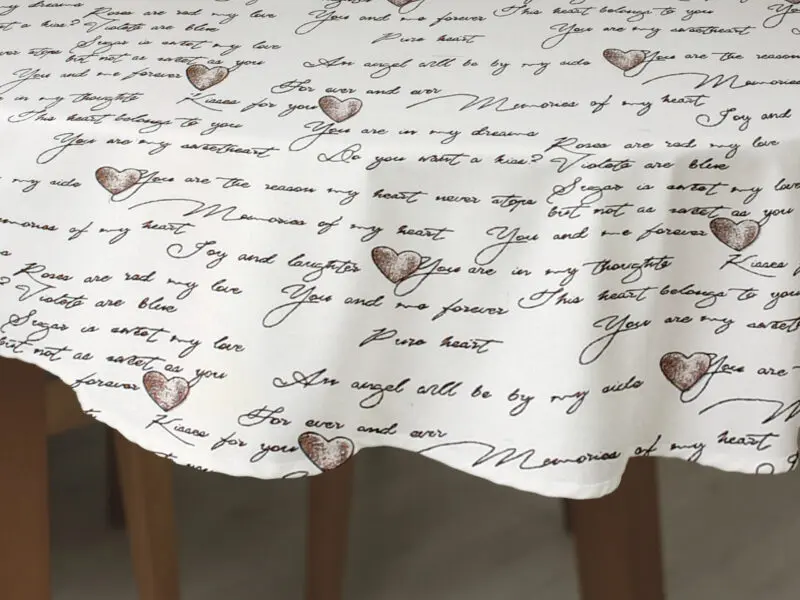 my dreams Roses are red my love You and me forever This heart belongs to you
want a kiss? Violets are blue You are my sweetheart
never stops Sugar is sweet my love Pure heart
but not as sweet as you An angel will be by my side You are the reason
You and me forever For ever and ever Memories
in my thoughts Kisses for you Memories of my heart Joy and
This heart belongs to you You are in my dreams Roses are red my love
You are my sweetheart Do you want a kiss? Violets are blue
my side You are the reason my heart never stops Sugar is sweet my love
but not as sweet as you
Memories of my heart Memories of my heart You and me forever
Joy and laughter You are in my thoughts Kisses
Roses are red my love You and me forever This heart belongs to you
? Violets are blue You are my sweet
Sugar is sweet my love Pure heart
but not as sweet as you An angel will be by my side You are
forever For ever and ever
Kisses for you Memories of my heart